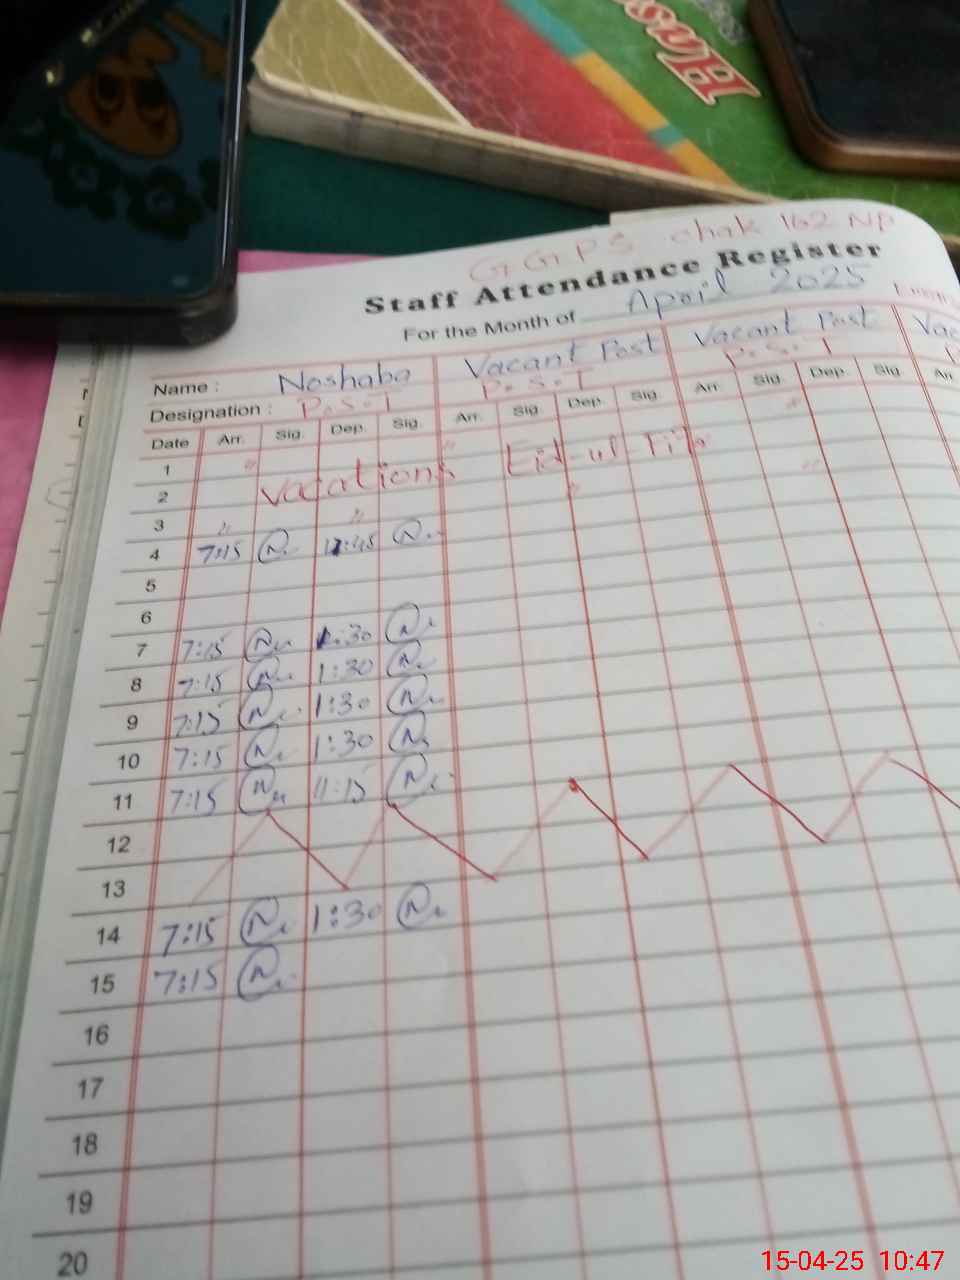 Hus
GGPS chak 162 NP
Staff Attendance Register
For the Month of April 2025
Name : Noshaba Vacant Post Vacant Post Vac
Designation : P.S.T P.S.T P.S.T P
Date Arr. Sig. Dep. Sig. Arr. Sig. Dep. Sig. Arr. Sig. Dep. Sig. Arr.
1 " "
2 vacations Eid-ul-Fitr " "
3 " "
4 7:15 N. 11:45 N.
5
6
7 7:15 N. 1:30 N.
8 7:15 N. 1:30 N.
9 7:15 N. 1:30 N.
10 7:15 N. 1:30 N.
11 7:15 N. 11:15 N.
12
13
14 7:15 N. 1:30 N.
15 7:15 N.
16
17
18
19
20
15-04-25 10:47